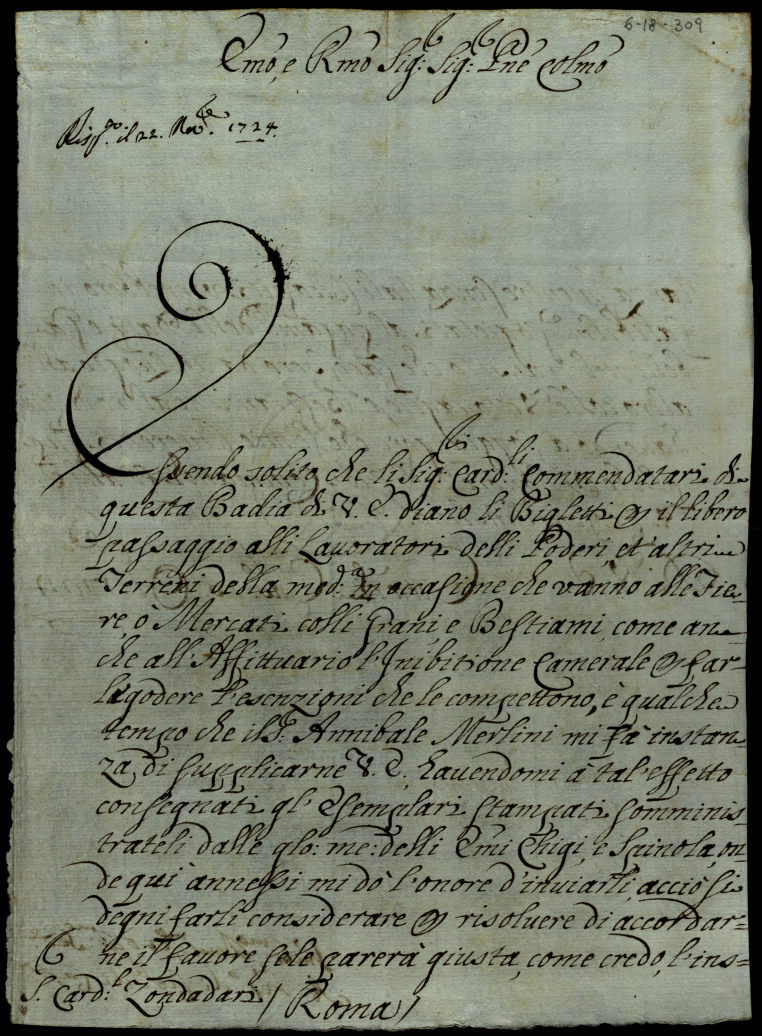 6-18-309
Emo, e Rmo Sig:re Sig:re Pne Colmo
Risp.to il 22. Nov.re 1724.
Essendo solito, che li Sig:ri Card:li Commendatari di
questa Badia di V. E. diano li Biglietti p il libero
passaggio alli Lavoratori delli Poderi, et' altri
Terreni della med:a in occasione che vanno alle Fie=
re, ò Mercati colli grani e Bestiami, come an=
che all' Affittuario l'Inibitione Camerale p far=
le godere l'esenzioni che le compettono, è qualche
tempo che il S.r Annibale Merlini mi fà instan=
za, di supplicarne V. E. havendomi à tal' effetto
consegnati gl' Esemplari stampati somminis=
trateli dalle glo: me: delli Emi Chigi, e Spinola, on=
de quì annessi mi dò l'onore d'inviarli, acciò si
degni farli considerare p risolvere di accordar=
ne il favore se le parerà giusta, come credo, l'ins=
E
S. Card:le Zondadari / Roma /